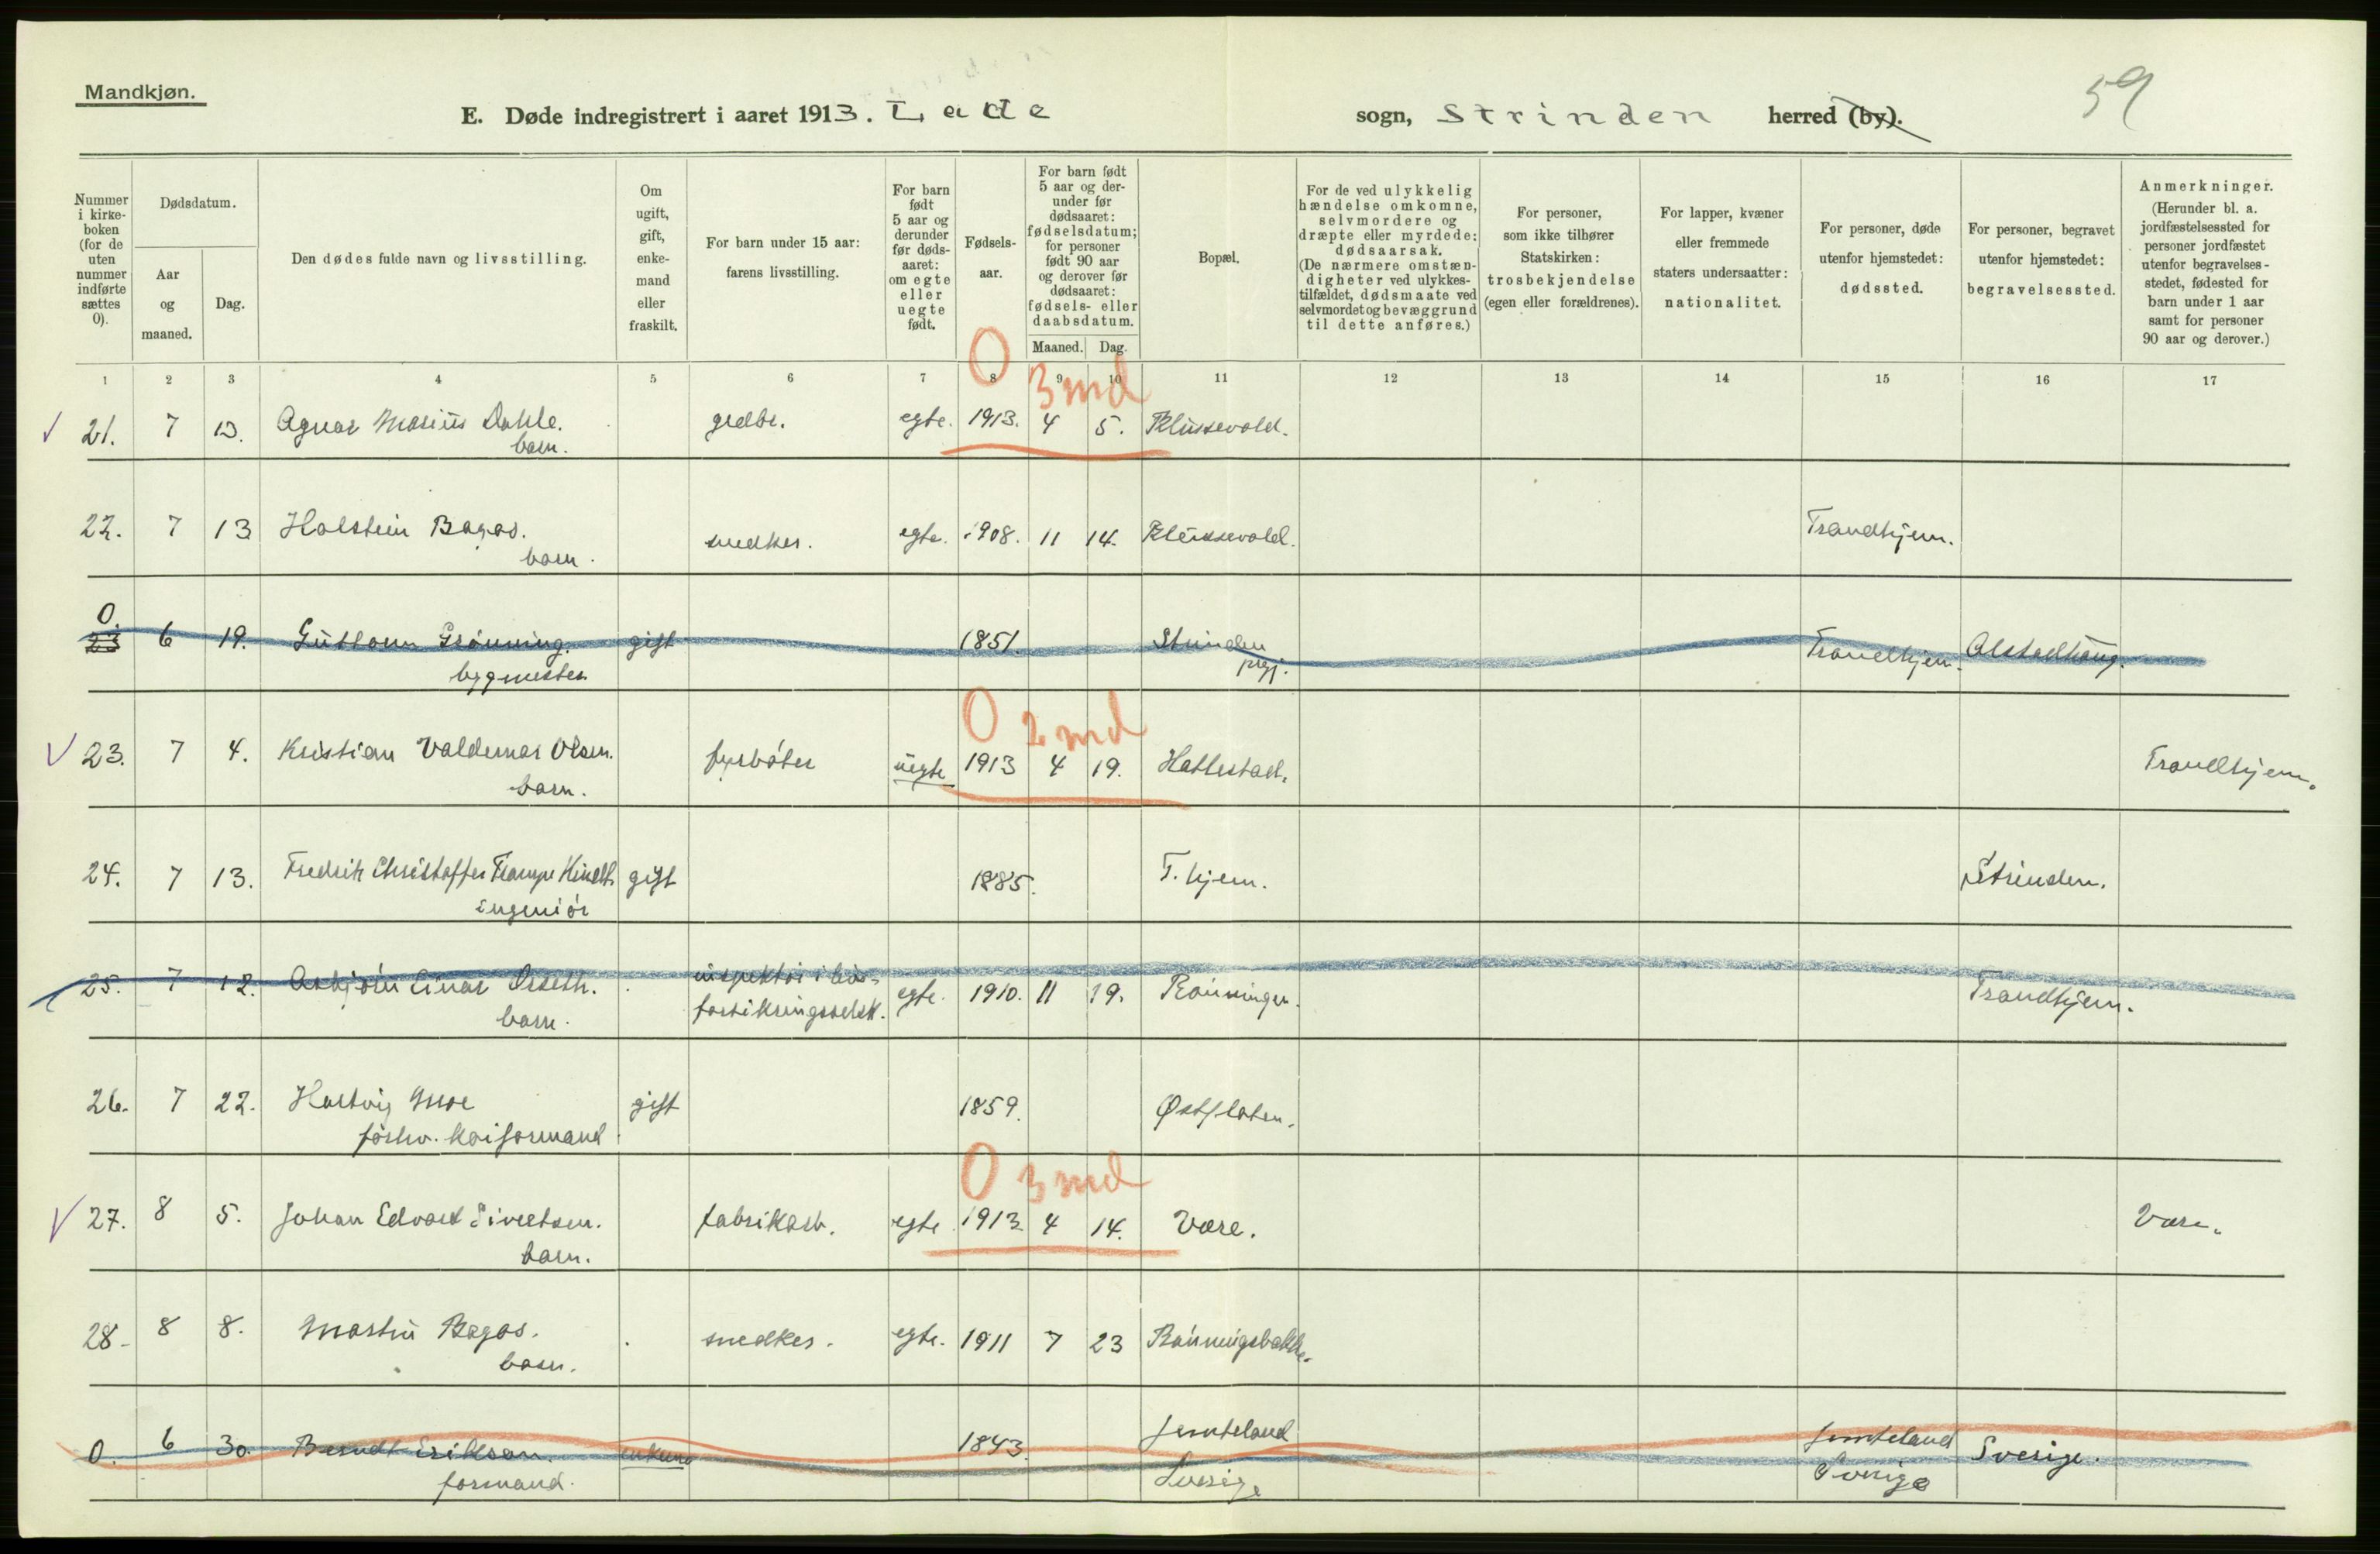 Mandkjøn.
59
E. Døde indregistrert i aaret 1913. Lade sogn, Strinden herred (by).
Nummer i kirke-boken (for de uten nummer indførte sættes 0).
Dødsdatum.
Aar og maaned.
Dag.
Den dødes fulde navn og livsstilling.
Om ugift, gift, enke-mand eller fraskilt.
For barn under 15 aar: farens livsstilling.
For barn født 5 aar og derunder før døds-aaret: om egte eller uegte født.
Fødsels-aar.
For barn født 5 aar og der-under før dødsaaret: fødselsdatum; for personer født 90 aar og derover før dødsaaret: fødsels- eller daabsdatum.
Maaned. Dag.
Bopæl.
For de ved ulykkelig hændelse omkomne, selvmordere og dræpte eller myrdede: dødsaarsak. (De nærmere omstæn-digheter ved ulykkes-tilfældet, dødsmaate ved selvmordet og bevæggrund til dette anføres.)
For personer, som ikke tilhører Statskirken: trosbekjendelse (egen eller forældrenes).
For lapper, kvæner eller fremmede staters undersaatter: nationalitet.
For personer, døde utenfor hjemstedet: dødssted.
For personer, begravet utenfor hjemstedet: begravelsessted.
Anmerkninger. (Herunder bl. a. jordfæstelsessted for personer jordfæstet utenfor begravelses-stedet, fødested for barn under 1 aar samt for personer 90 aar og derover.)
1 2 3 4 5 6 7 8 9 10 11 12 13 14 15 16 17
0 3 md
21. 7 13. Agnar Marius Dahle. grdbr. egte. 1913. 4 5. Klüssevold.
barn.
22. 7 13 Halstein Bagøs. snedker. egte. 1908. 11 14. Klüssevold. Trondhjem.
barn.
0.
23 6 19. Guttorm Grönning. gift 1851. Strinden Trondhjem. Alstadhaug.
bygmester. prgj.
0 2 md
23. 7 4. Kristian Valdemar Olsen. fyrböter uegte 1913 4 19. Hallestad. Trondhjem.
barn.
24. 7 13. Fredrik Christoffer Trampe gift 1885. T.hjem. Strinden.
ingeniör
25. 7 12. Asbjörn Einar inspektör i livs-
barn. forsikringsselsk. egte. 1910. 11 19. Rönningen. Trondhjem.
26. 7 22. Hartvig Moe gift 1859. Østflaten.
forhv. kaiformand
0 3 md
27. 8 5. Johan Edvard Sivertsen. fabrikarb. egte 1913 4 14. Være. Være.
barn.
28. 8 8. Martin Bagøs. snedker. egte. 1911 7 23 Rönningsbakke.
barn.
0. 6 30. Berndt Erikson. enkem 1843. Jemteland Jemteland Sverige.
formand. Sverige Sverige